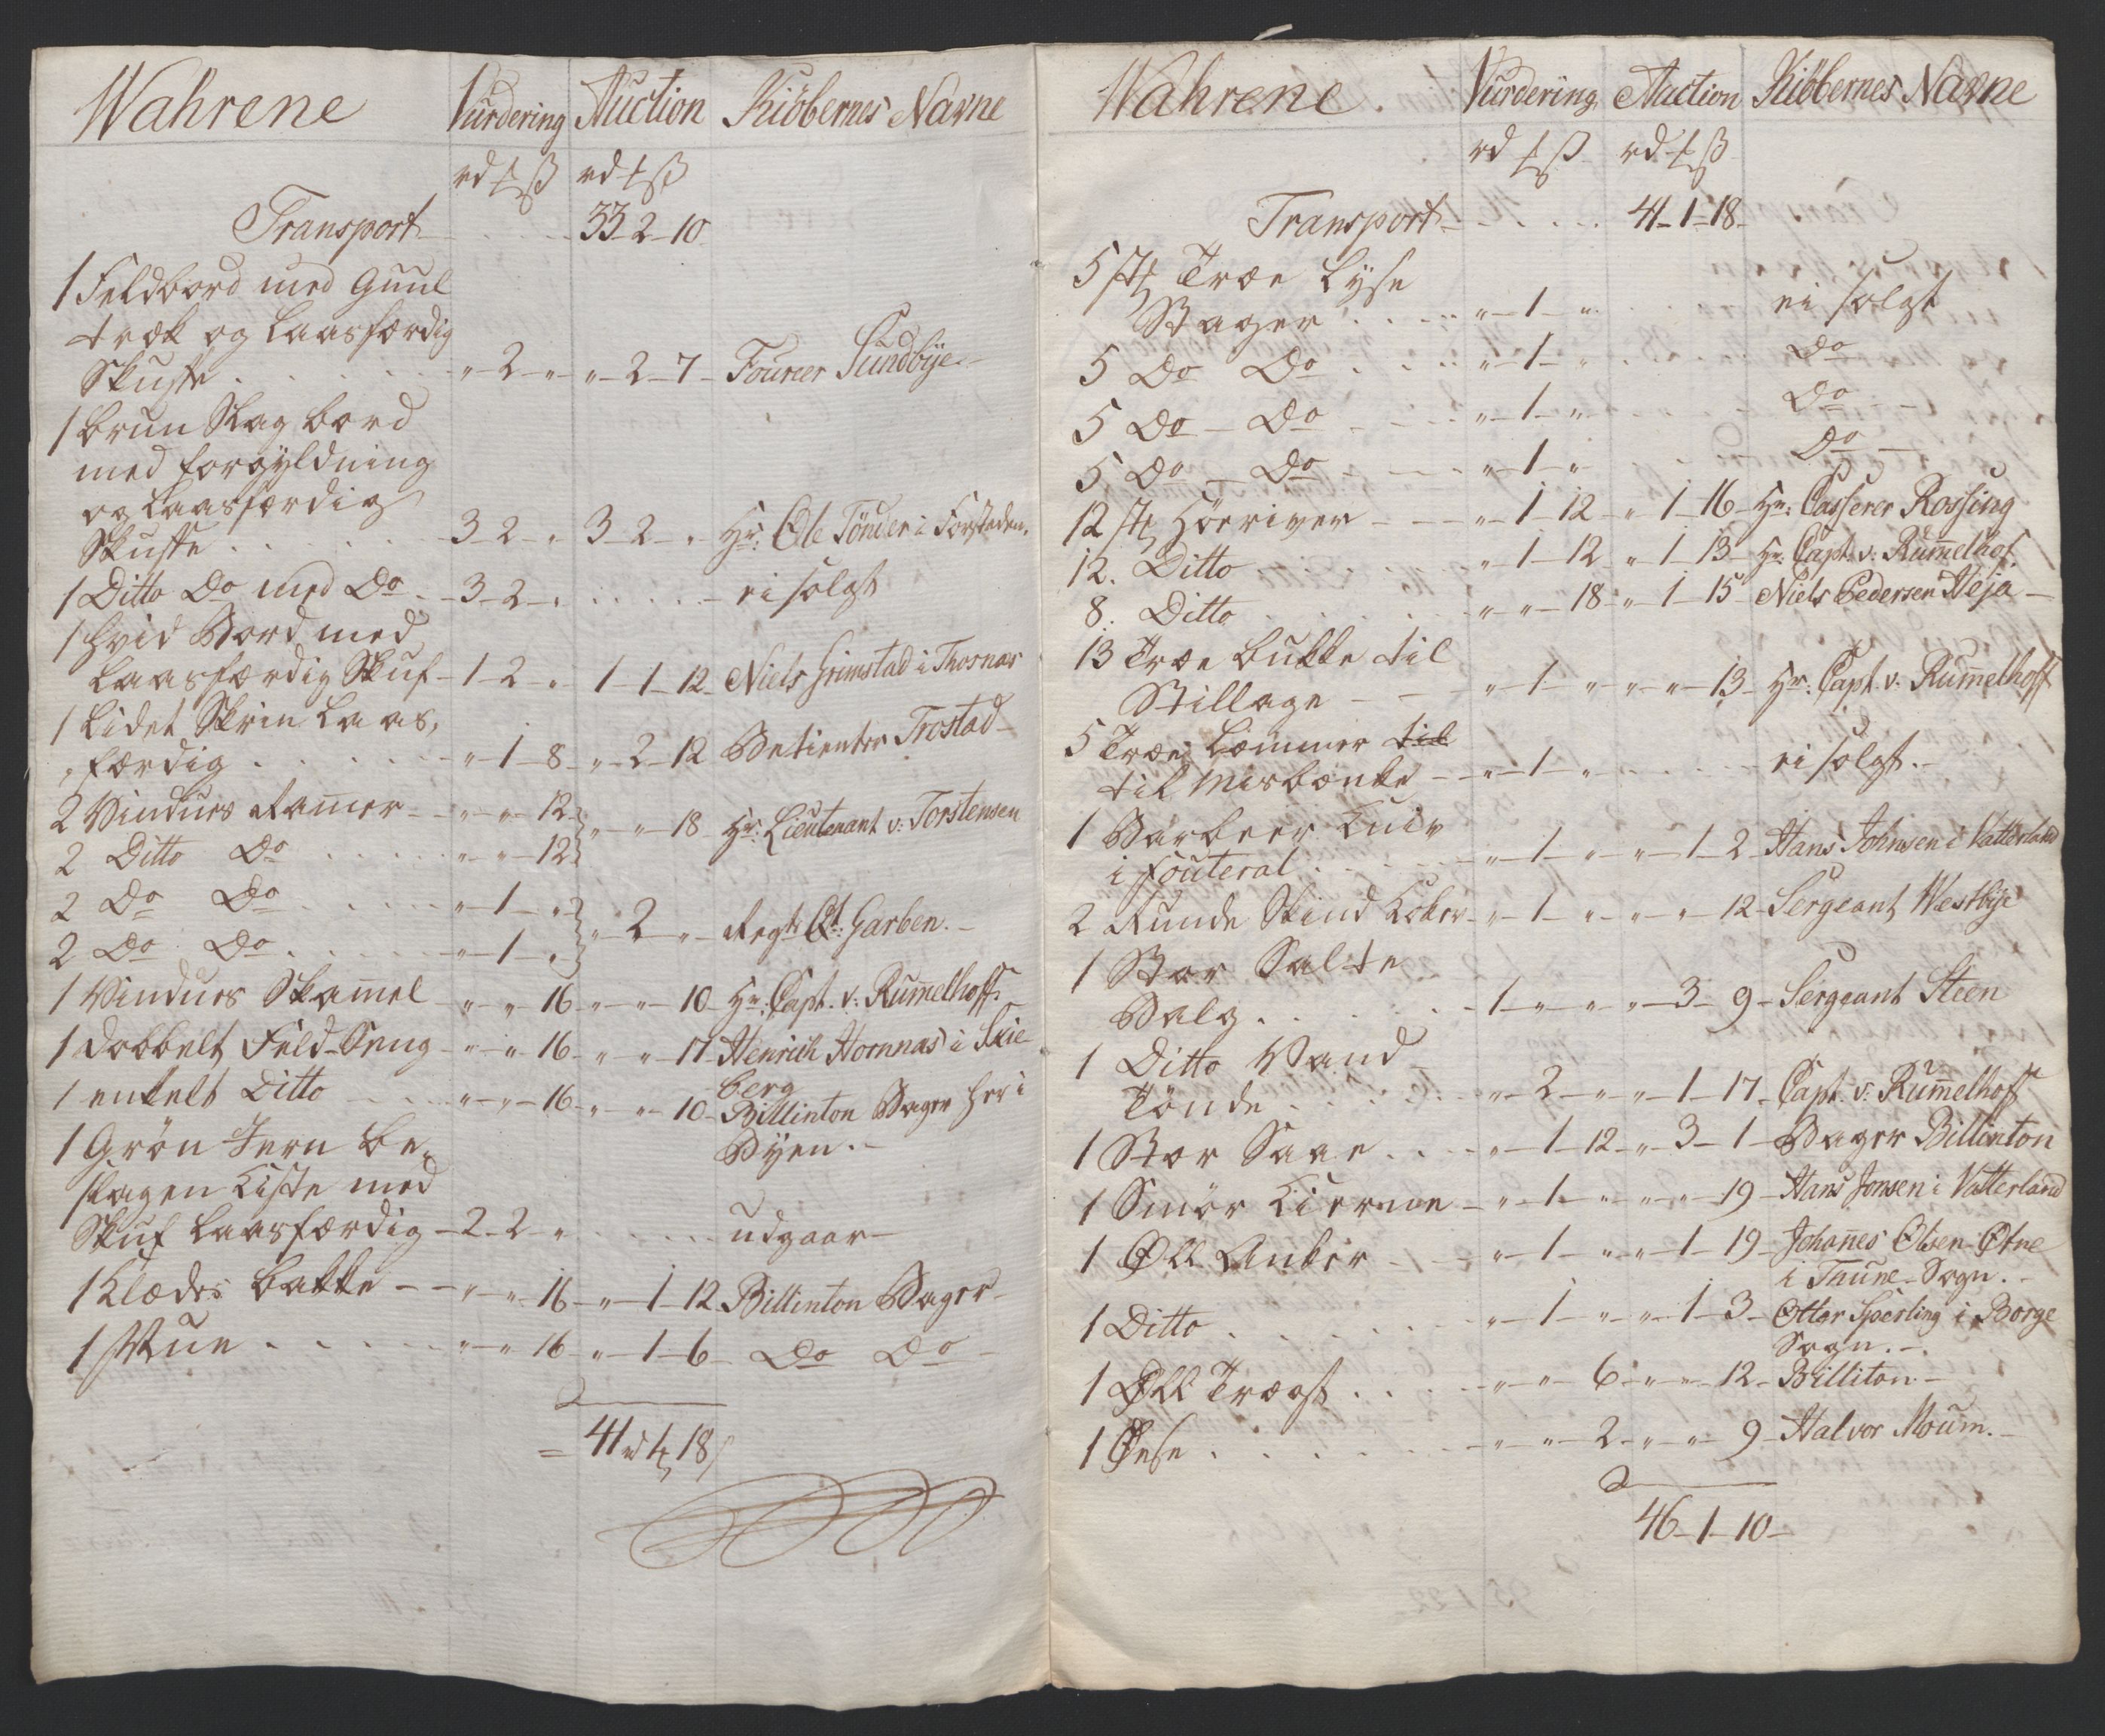 Wahrene Vurdering Auction Kiöbernes Navne
rd ß rd ß
Transport 33 - 2 - 10
1 Feldbord med Guul
træk og Laasfærdig
Skuffe . . . . . " - 2 - " - " - 2 - 7 - Fourier Sundbÿe -
1 brun Slag bord
med forgyldning
og Laasfærdig
Skuffe . . . . . 3 - 2 - " 3 - 2 - " Hr: Ole Tönder i Forstaden.
1 Ditto Do med Do - 3 - 2 - " . . . . . - ei solgt
1 hvid Bord med
Laasfærdig Skuf - 1 - 2 - " 1 - 1 - 12 - Niels Grimstad i Thosnæs
1 Lidet Skrin Laas,
færdig . . . . . " - 1 - 8 - " - 2 - 12 Betienter Trostad -
2 Vindues Ram̅er - " - " - 12
2 Ditto Do . . . . . " - " - 12 " - " - 18 - Hr: Lieutenant v: Torstensen
2 Do Do . . . . . " - 1 - "
2 Do Do . . . . . " - 1 - " " - 2 - " - Regts: Qt: Garben. -
1 Vindues Skam̅el " - " 16 - " - " - 10 - Hr: Capt. v: Rum̅elhoff. -
1 Dobbelt Feld-Seng - " - " 16 - " - " - 17 - Henrich Hornnæs i Skie-
berg
1 enkelt Ditto - - " - " - 16 - " - " - 10 - Billinton Bager her i
Byen. -
1 Grön Jern be-
slagen Kiste med
Skuf Laasfærdig - 2 - 2 - " . . . . . udgaar -
1 Klædes bakke - - " - " 16 - " - 1 - 12 - Billinton Bager -
1 Mue . . . . . " - " 16 - " - 1 - 6 - Do Do -
= 41 rd 18 ß
Wahrene. Vurdering Auction Kiöbernes Navne
rd ß rd ß
Transport - . . . . . 41 - 1 - 18 -
5 st Træe Lyse
Stager . . . . . " - 1 - " . . . . . ei solgt
5 Do Do . . . . . " - 1 - " . . . . . Do
5 Do - Do - . . . " - 1 - " . . . . . Do -
5 Do - Do - - - " - 1 - " . . . . . Do -
12 st Höeriver - - - " - 1 - 12 - " 1 - 16 - Hr: Casserer Rossing
12. Ditto . . . . . " - 1 - 12 " - 1 - 13 - Hr: Capt. v: Rum̅elhof.
8. Ditto . . . . . " - " - 18 - " - 1 - 15 - Niels Pedersen Heja -
13 Træe bukke til
Stillage - - " - 1 - " - " - " - 13 - Hr: Capt v: Rum̅elhoff
5 Træe Læmmer til
til Misbænke - - " - 1 - " . . . . . ei solgt. -
1 Barbeer Kniv
i Fouteral . . . . . " - 1 - " - " - 1 - 2 - Hans Johnsen i Vatterland
2 Runde Skind Koker - " - 1 - " - " - " - 12 - Sergeant Westbÿe
1 Stor Salte
Balg . . . . . - 1 - " - " - " - 3 - 9 - Sergeant Steen
1 Ditto Vand
Tönde . . . . . " - 2 - " - " - 1 - 17 - Capt. v: Rum̅elhoff
1 Stor Saae . . . - " - 1 - 12 - " - 3 - 1 - Bager Billinton
1 Smör Kierne - " - 1 - " - " - " - 19 - Hans Jonsen i Vatterland
1 Öll Anker - - " - 1 - " - " - 1 - 19 - Johan̅es Olsen Otne
i Thune - Sogn. -
1 Ditto . . . . . " - 1 - " - " - 1 - 3 - Otter Sperling i Borge
Sogn. -
1 Öll Trægt . . . - " - " - 6 - " - " - 12 - Billiton -
1 Öese . . . . . - " - " - 2 - " - " - 9 - Halvor Moum. -
46 - 1 - 10 -